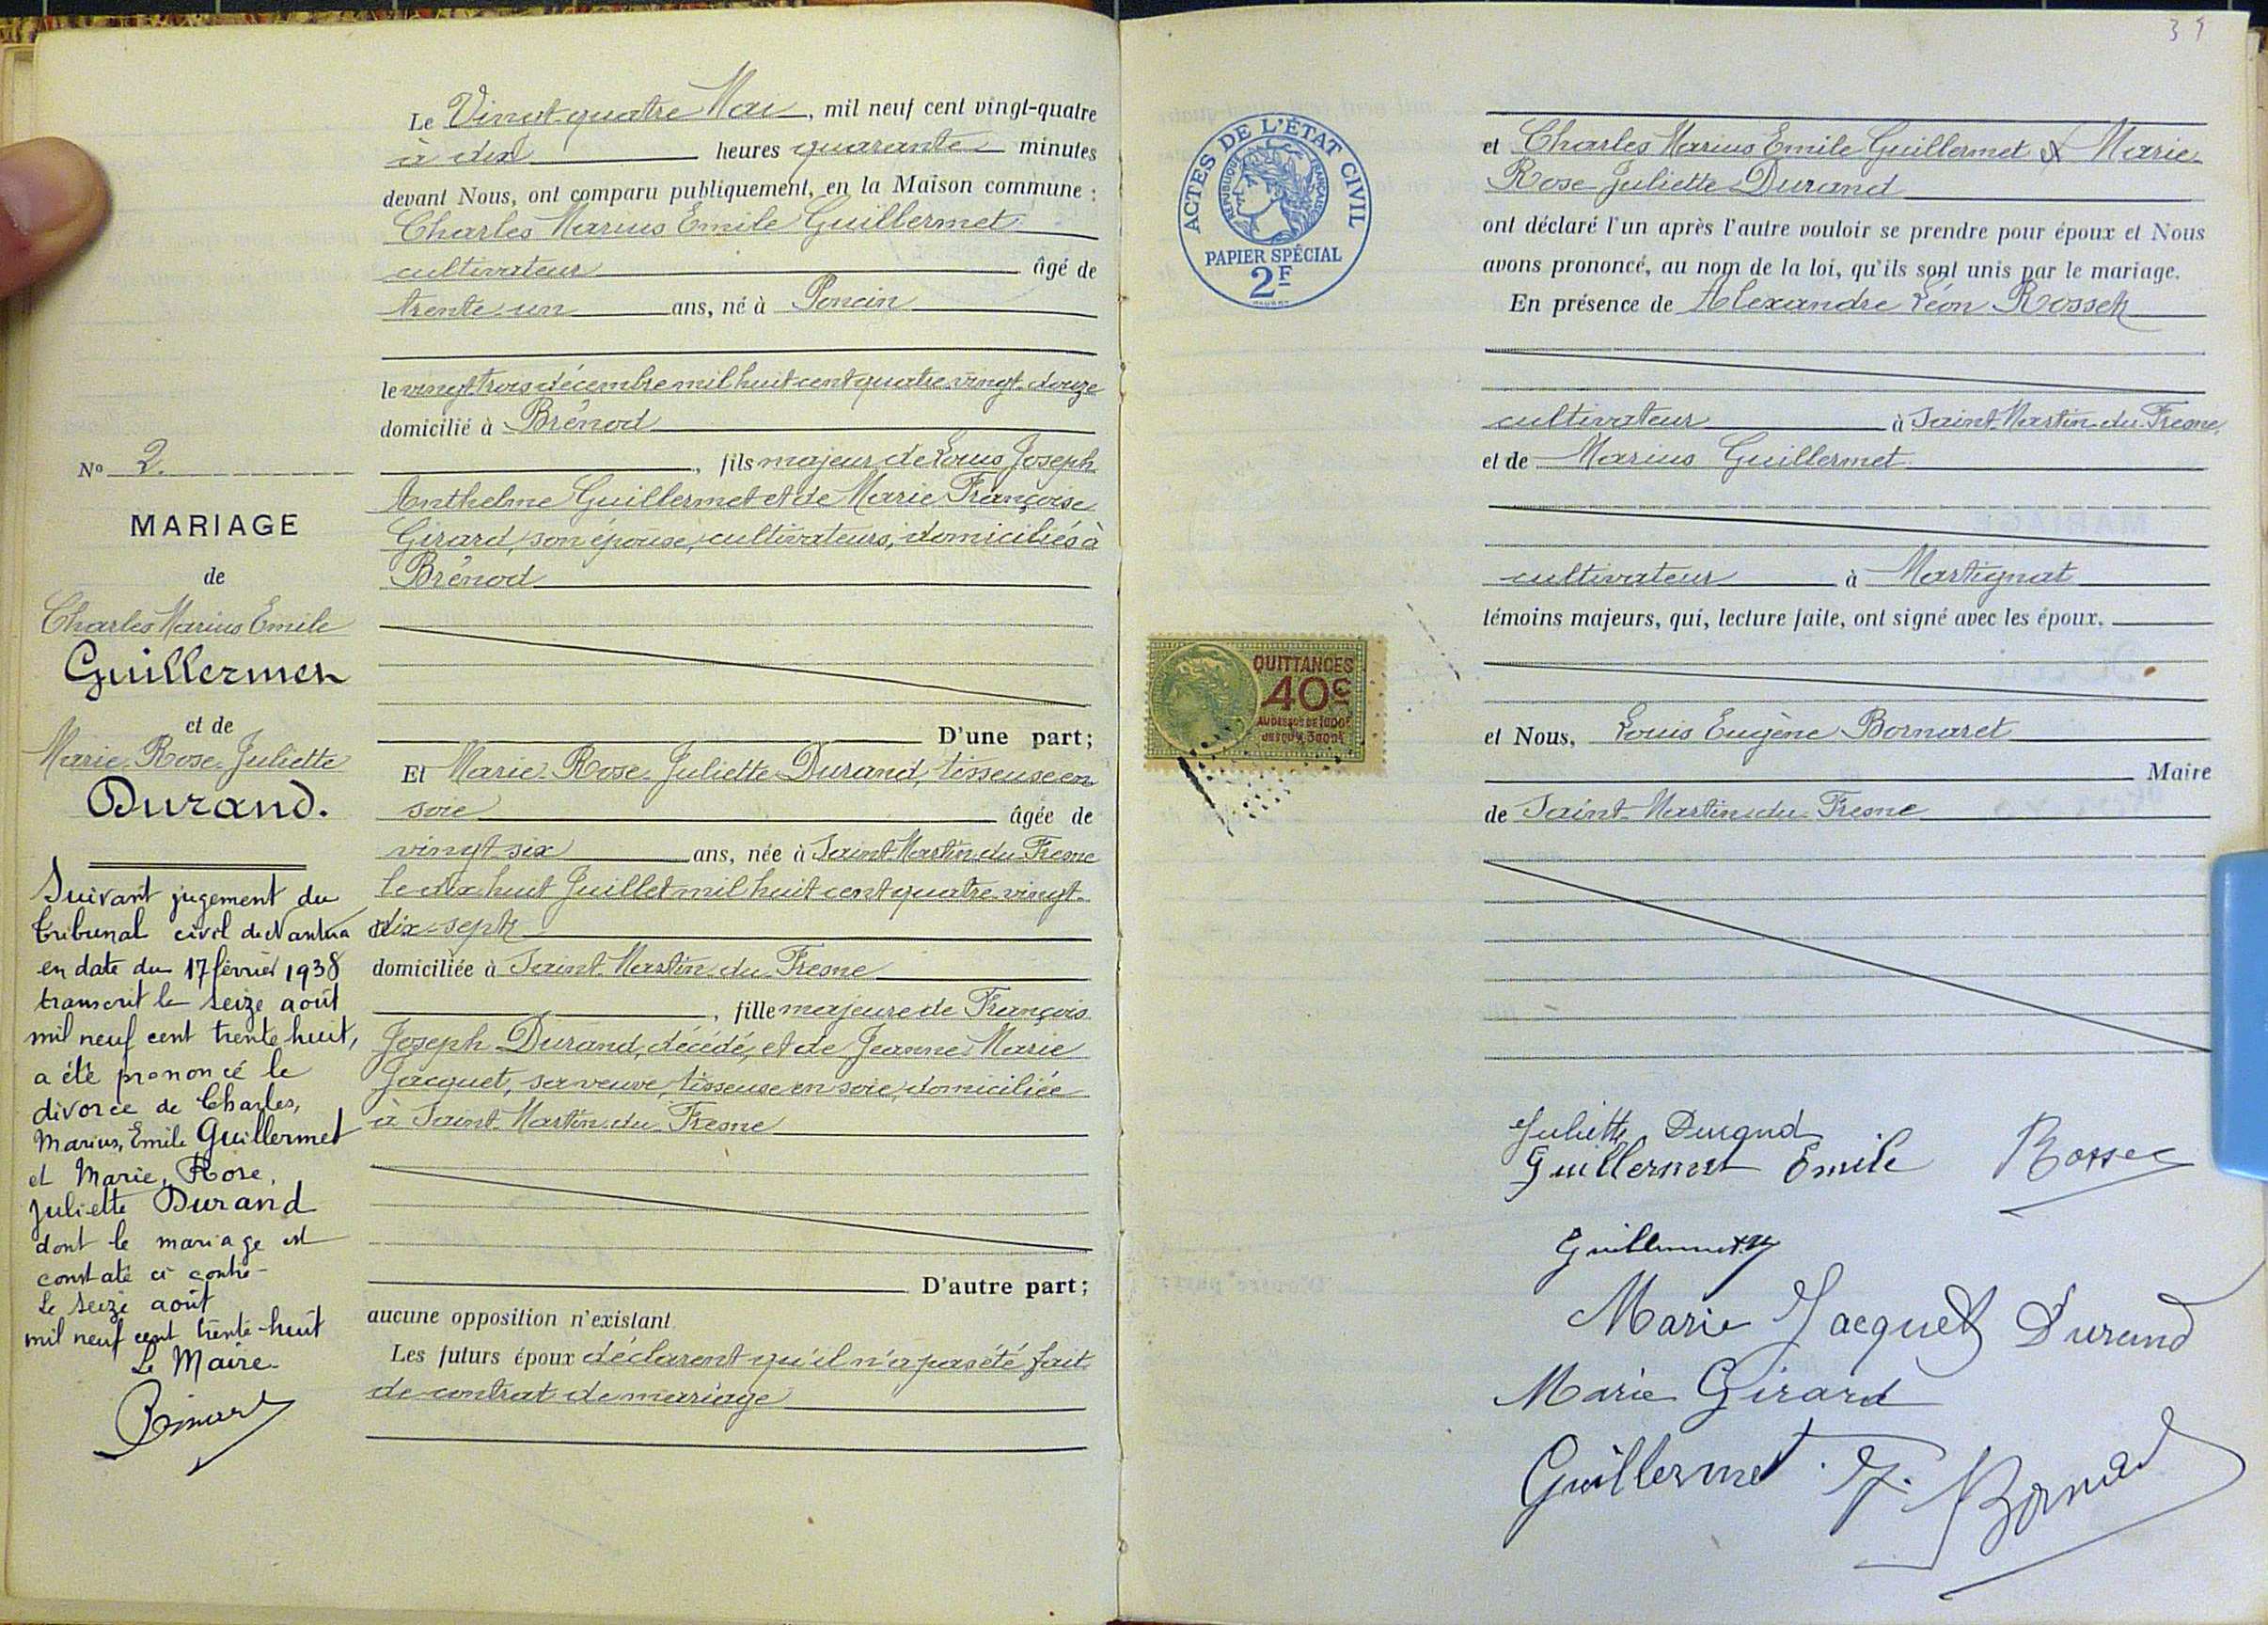 39
Le Vingt-quatre Mai, mil neuf cent vingt-quatre
à dix heures quarante minutes
devant Nous, ont comparu publiquement, en la Maison commune :
Charles Marius Emile Guillermet
cultivateur âgé de
trente un ans, né à Poncin
le vingt trois décembre mil huit cent quatre vingt-douze
domicilié à Brénod
, fils majeur de Louis Joseph
Anthelme Guillermet et de Marie Françoise
Girard, son épouse, cultivateurs, domiciliés à
Brénod
D'une part;
Et Marie Rose Juliette Durand, tisseuse en
soie âgée de
vingt-six ans, née à Saint-Martin-du-Fresne
le dix huit Juillet mil huit cent quatre-vingt-
dix-sept
domiciliée à Saint-Martin-du-Fresne
, fille majeure de François
Joseph Durand, décédé, et de Jeanne Marie
Jacquet, sa veuve, tisseuse en soie, domiciliée
à Saint-Martin-du-Fresne
D'autre part;
aucune opposition n'existant
Les futurs époux déclarent qu'il n'a pas été fait
de contrat de mariage
No 2.
MARIAGE
de
Charles Marius Emile
Guillermet
et de
Marie Rose Juliette
Durand.
Suivant jugement du
tribunal civil de Nantua
en date du 17 février 1938
transcrit le seize août
mil neuf cent trente huit,
a été prononcé le
divorce de Charles,
Marius, Emile Guillermet
et Marie, Rose,
Juliette Durand
dont le mariage est
constaté ci contre-
Le seize août
mil neuf cent trente-huit
Le Maire
ACTES DE L'ÉTAT CIVIL
RÉPUBLIQUE FRANÇAISE
PAPIER SPÉCIAL
2F
QUITTANCES
40c
AU DESSUS DE 1000F
JUSQU'A 3000F
et Charles Marius Emile Guillermet & Marie
Rose Juliette Durand
ont déclaré l'un après l'autre vouloir se prendre pour époux et Nous
avons prononcé, au nom de la loi, qu'ils sont unis par le mariage.
En présence de Alexandre Léon Rosset
cultivateur à Saint-Martin-du-Fresne,
et de Marius Guillermet
cultivateur à Martignat
témoins majeurs, qui, lecture faite, ont signé avec les époux.
et Nous, Louis Eugène Bornaret
Maire
de Saint-Martin-du-Fresne
Juliette Durand
Guillermet Emile Rosset
Guillermet M
Marie Jacquet Durand
Marie Girard
Guillermet